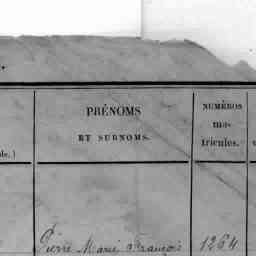 PRÉNOMS
ET SURNOMS.
NUMÉROS
ma-
tricules.
Pierre Marie François 1264